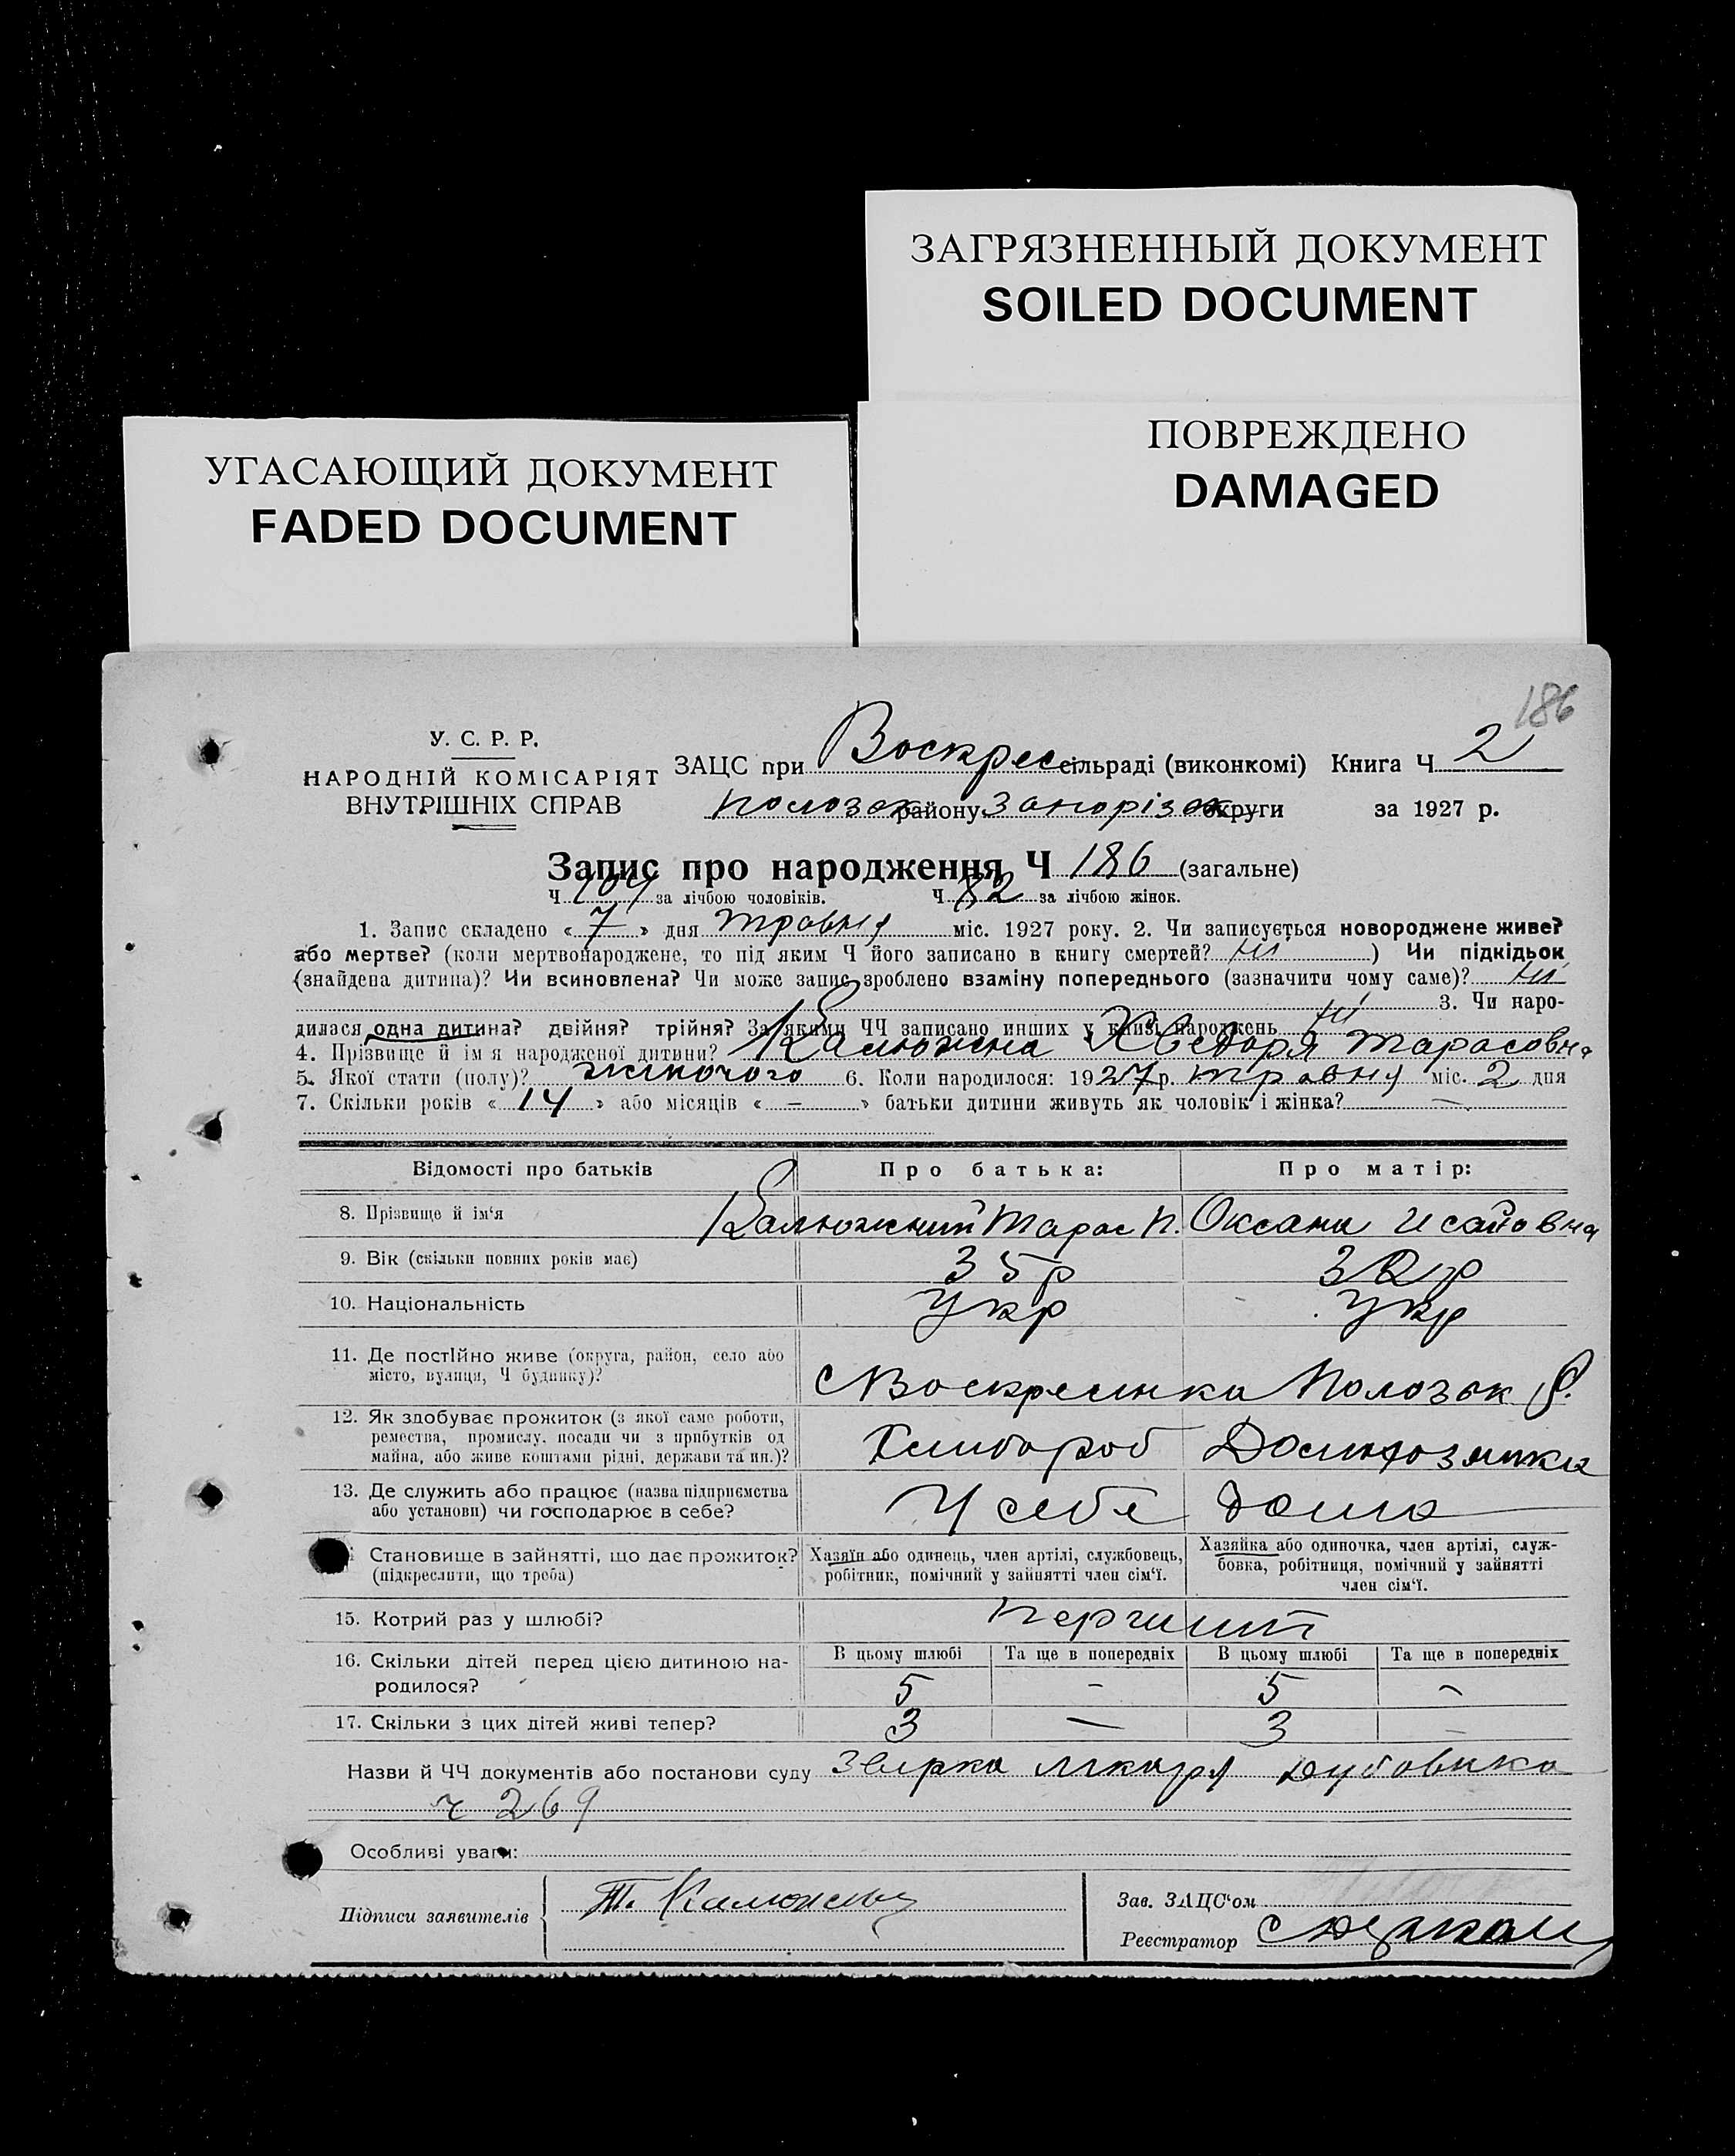 ЗАГРЯЗНЕННЫЙ ДОКУМЕНТ
SOILED DOCUMENT
ПОВРЕЖДЕНО
DAMAGED
УГАСАЮЩИЙ ДОКУМЕНТ
FADED DOCUMENT
186
У. С. Р. Р.
НАРОДНІЙ КОМІСАРІЯТ
ВНУТРІШНІХ СПРАВ
ЗАЦС при Воскрес сільраді (виконкомі) Книга Ч 2
Полозок району Запорізок округи за 1927 р.
Запис про народження Ч 186 (загальне)
Ч 104 за лічбою чоловіків. Ч 82 за лічбою жінок.
1. Запис складено « 7 » дня травня міс. 1927 року. 2. Чи записується новороджене живе?
або мертве? (коли мертвонароджене, то під яким Ч його записано в книгу смертей? ні ) Чи підкідьок
(знайдена дитина)? Чи всиновлена? Чи може запис зроблено взаміну попереднього (зазначити чому саме)? ні
3. Чи наро-
дилася одна дитина? двійня? трійня? За якими ЧЧ записано инших у книзі народжень ні
4. Прізвище й ім я народженої дитини? Калюжна Хведоря Тарасовна
5. Якої стати (полу)? жіночого 6. Коли народилося: 1927 р. травня міс. 2 дня
7. Скільки років « 14 » або місяців « – » батьки дитини живуть як чоловік і жінка? –
Відомості про батьків Про батька: Про матір:
8. Прізвище й ім‘я Калюжний Тарас П. Оксана Исайовна
9. Вік (скільки повних років має) 35 р 32 р
10. Національність Укр Укр
11. Де постійно живе (округа, район, село або
місто, вулиця, Ч будинку)? С Воскресинка Полозьк р.
12. Як здобуває прожиток (з якої саме роботи,
ремества, промислу, посади чи з прибутків од
майна, або живе коштами рідні, держави та ин.)? Хлибороб Домогозяйка
13. Де служить або працює (назва підприємства
або установи) чи господарює в себе? У себе дома
Становище в зайнятті, що дає прожиток?
(підкреслити, що треба)
Хазяїн або одинець, член артілі, службовець,
робітник, помічний у зайнятті член сім‘ї.
Хазяйка або одиночка, член артілі, служ-
бовка, робітниця, помічний у зайнятті
член сім‘ї.
15. Котрий раз у шлюбі? перший
16. Скільки дітей перед цією дитиною на-
родилося?
В цьому шлюбі Та ще в попередніх В цьому шлюбі Та ще в попередніх
5 – 5 –
17. Скільки з цих дітей живі тепер? 3 – 3 –
Назви й ЧЧ документів або постанови суду Звирка лікаря Дубовика
ч 269
Особливі уваги:
Підписи заявителів Т. Калюжный
Зав. ЗАЦС‘ом
Реєстратор